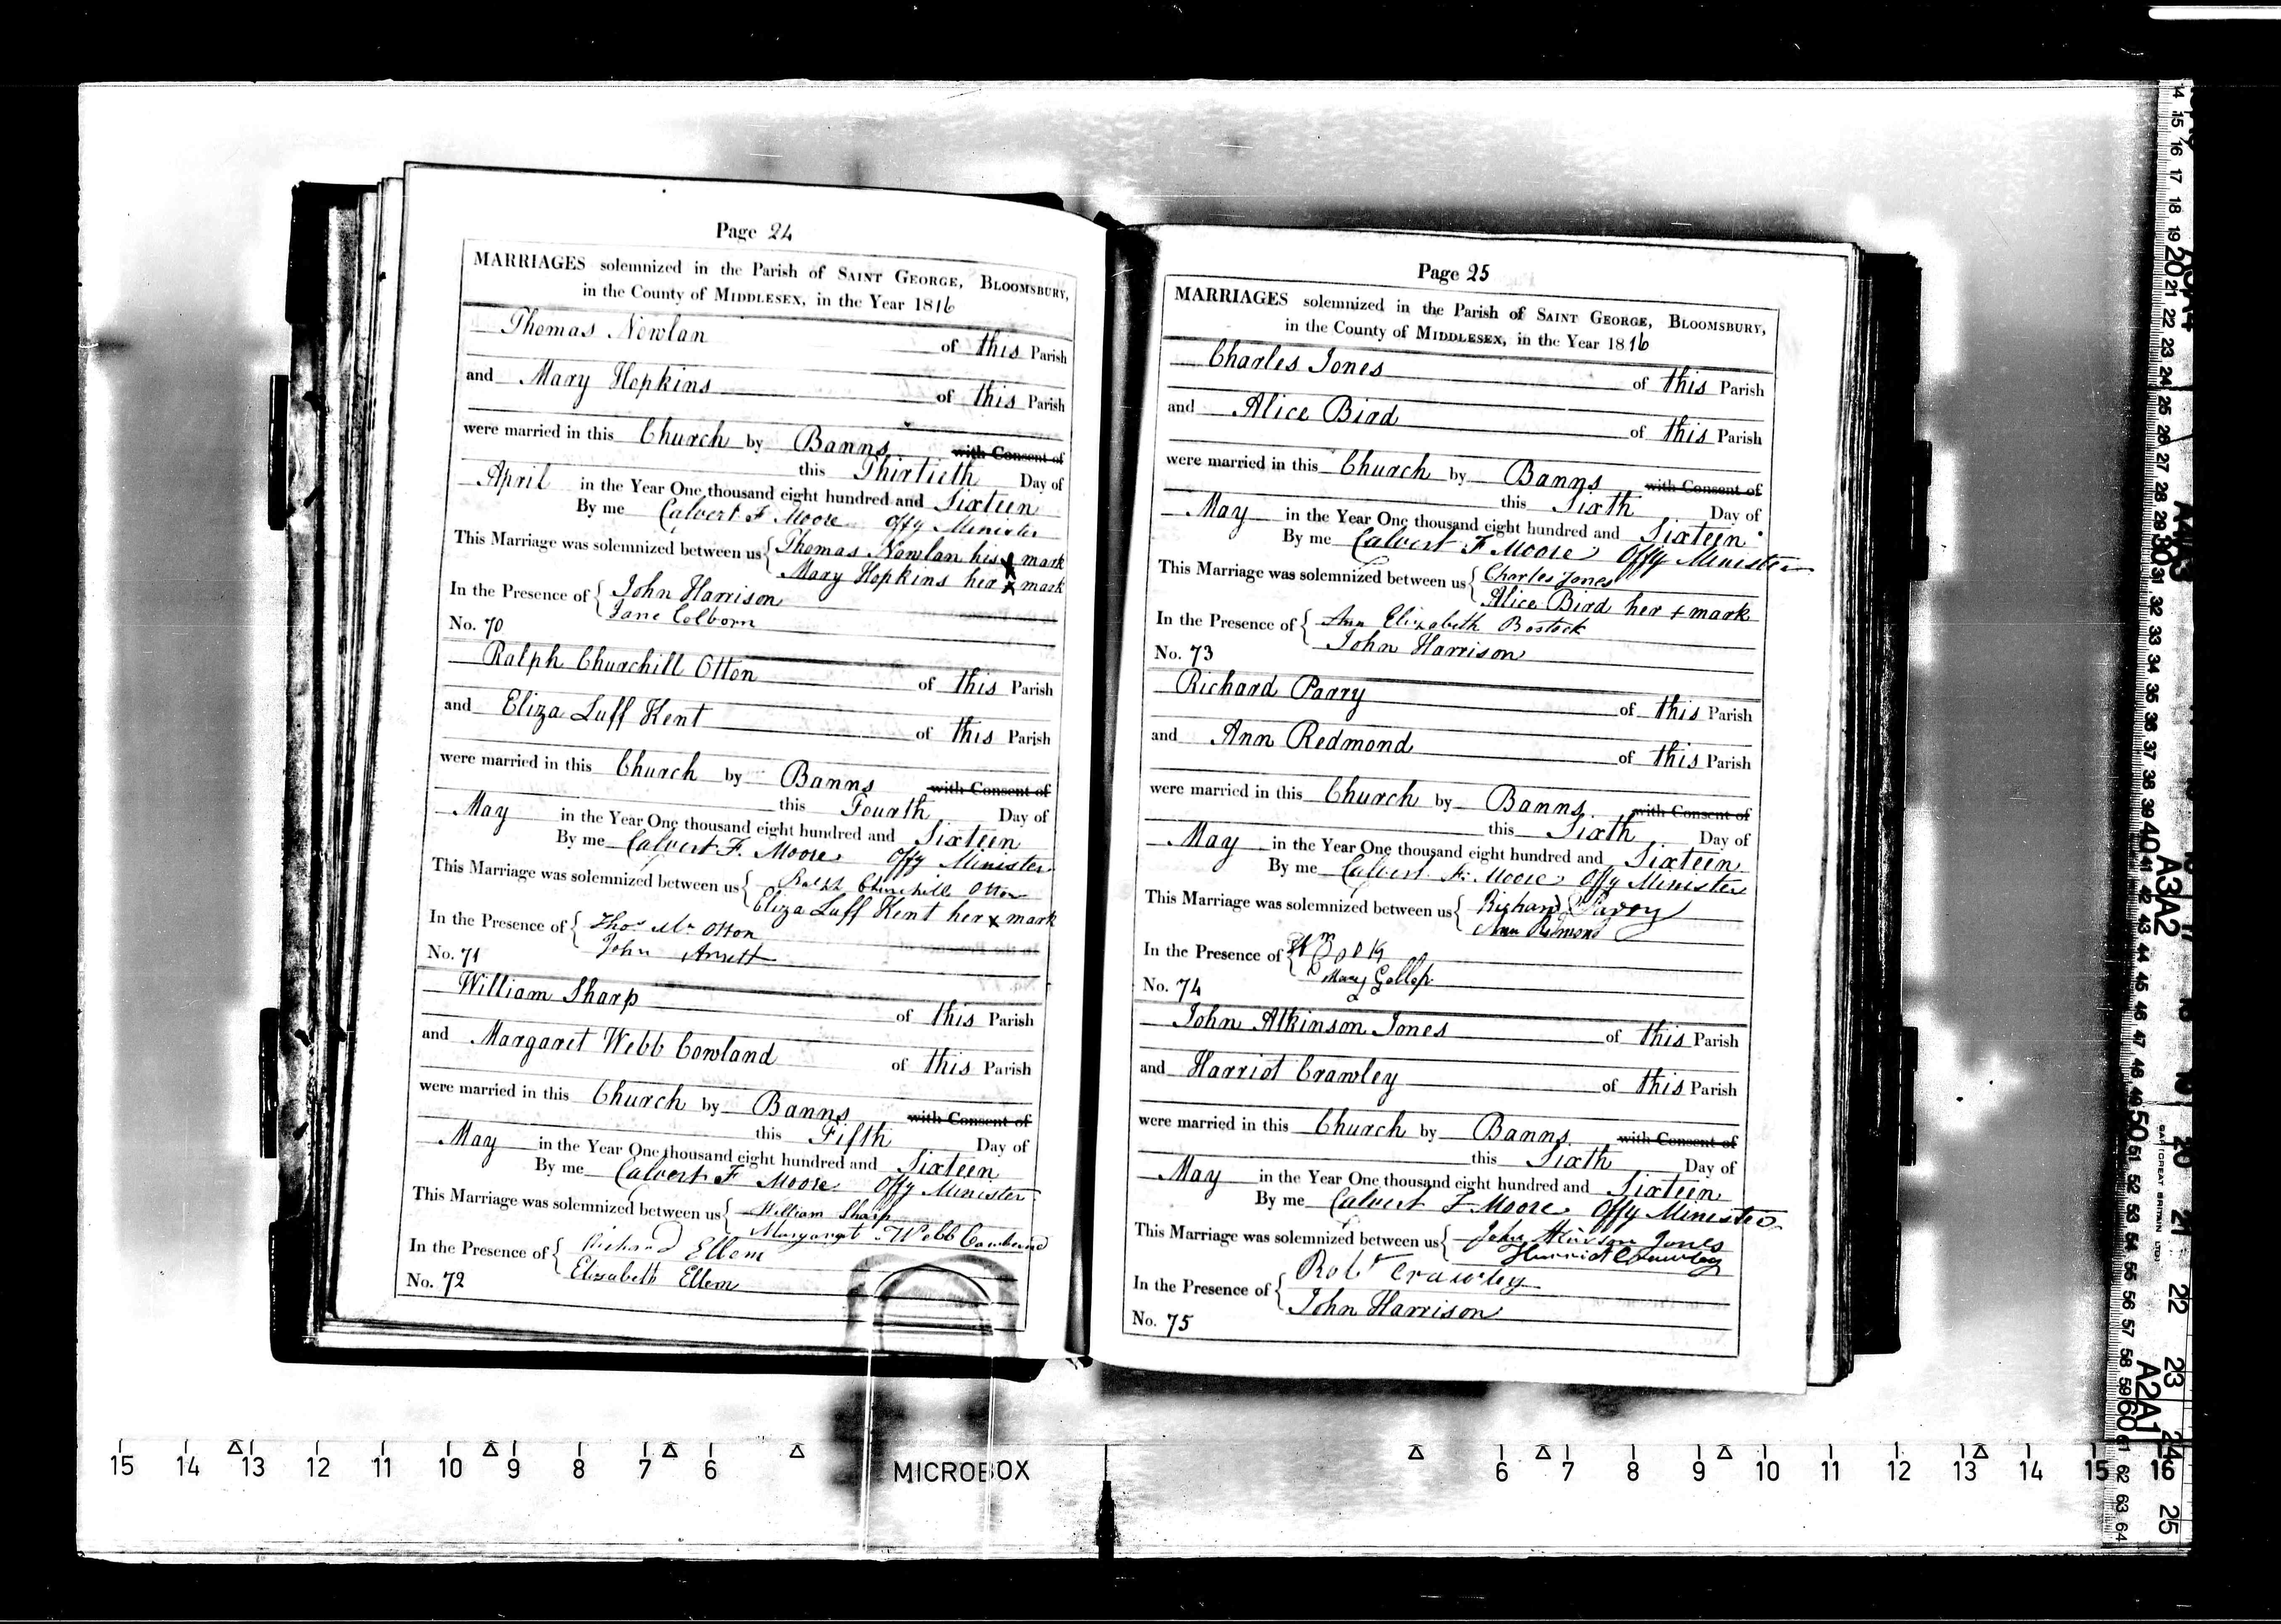 Page 24
MARRIAGES solemnized in the Parish of SAINT GEORGE, BLOOMSBURY,
in the County of MIDDLESEX, in the Year 1816
Thomas Newlan of this Parish
and Mary Hopkins of this Parish
were married in this Church by Banns with Consent of
this Thirtieth Day of
April in the Year One thousand eight hundred and Sixteen
By me Calvert F Moore Offg Minister
This Marriage was solemnized between us { Thomas Newlan his x mark
Mary Hopkins her x mark
In the Presence of { John Harrison
Jane Colborn
No. 70
Ralph Churchill Otton of this Parish
and Eliza Luff Kent of this Parish
were married in this Church by Banns with Consent of
this Fourth Day of
May in the Year One thousand eight hundred and Sixteen
By me Calvert F. Moore Offg Minister
This Marriage was solemnized between us { Ralph Churchill Otton
Eliza Luff Kent her x mark
In the Presence of { Thos Otton
John
No. 71
William Sharp of this Parish
and Margaret Webb Cowland of this Parish
were married in this Church by Banns with Consent of
this Fifth Day of
May in the Year One thousand eight hundred and Sixteen
By me Calvert F Moore Offg Minister
This Marriage was solemnized between us { William Sharp
Margaret Webb Cowland
In the Presence of { Richard Ellem
Elizabeth Ellem
No. 72
Page 25
MARRIAGES solemnized in the Parish of SAINT GEORGE, BLOOMSBURY,
in the County of MIDDLESEX, in the Year 1816
Charles Jones of this Parish
and Alice Bird of this Parish
were married in this Church by Banns with Consent of
this Sixth Day of
May in the Year One thousand eight hundred and Sixteen
By me Calvert F Moore Offg Minister
This Marriage was solemnized between us { Charles Jones
Alice Bird her + mark
In the Presence of { Ann Elizabeth Bostock
John Harrison
No. 73
Richard Parry of this Parish
and Ann Redmond of this Parish
were married in this Church by Banns with Consent of
this Sixth Day of
May in the Year One thousand eight hundred and Sixteen
By me Calvert F. Moore Offg Minister
This Marriage was solemnized between us { Richard Parry
Ann Redmond
In the Presence of { Wm
Mary Gollop
No. 74
John Atkinson Jones of this Parish
and Harriot Crawley of this Parish
were married in this Church by Banns with Consent of
this Sixth Day of
May in the Year One thousand eight hundred and Sixteen
By me Calvert F Moore Offg Minister
This Marriage was solemnized between us { John Atkinson Jones
Harriot Crawley
In the Presence of { Robt Crawley
John Harrison
No. 75
15 14 13 12 11 10 9 8 7 6 MICROBOX 6 7 8 9 10 11 12 13 14 15 16